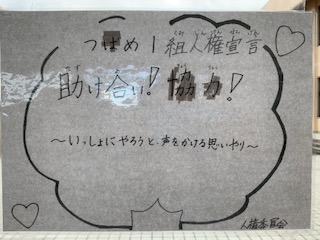 つばめ1組人権宣言
助け合い！協力！
～いっしょにやろうと、声をかける思いやり～
人権委員会